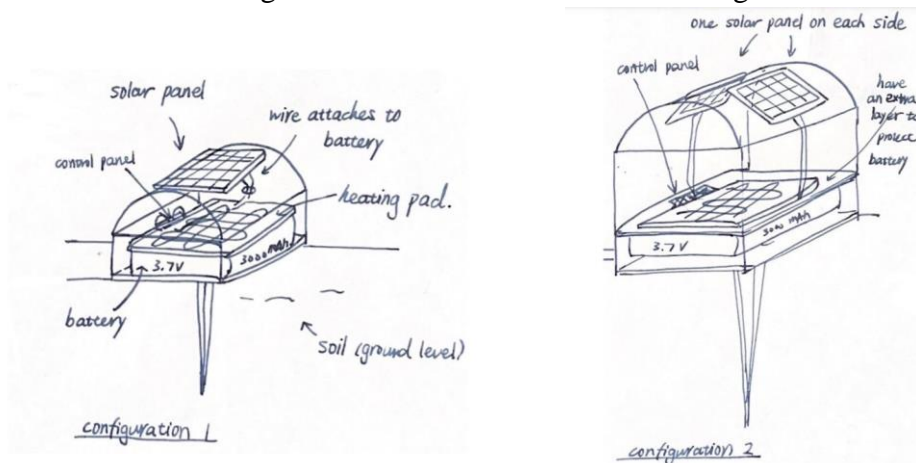 solar panel
wire attaches to
battery
control panel
heating pad.
3.7V
3000 mAh
battery
soil (ground level)
configuration 1
one solar panel on each side
control panel
have
an extra
layer to
protec
battery
3.7V
3000 mAh
configuration 2